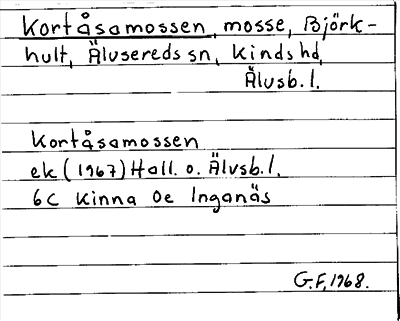 Kortåsamossen, mosse, Björk-
hult, Älvsereds sn, Kinds hd,
Älvsb. l.
Kortåsamossen
ek (1967) Hall. o. Älvsb. l.
6C Kinna Oe Inganäs
G.F, 1968.